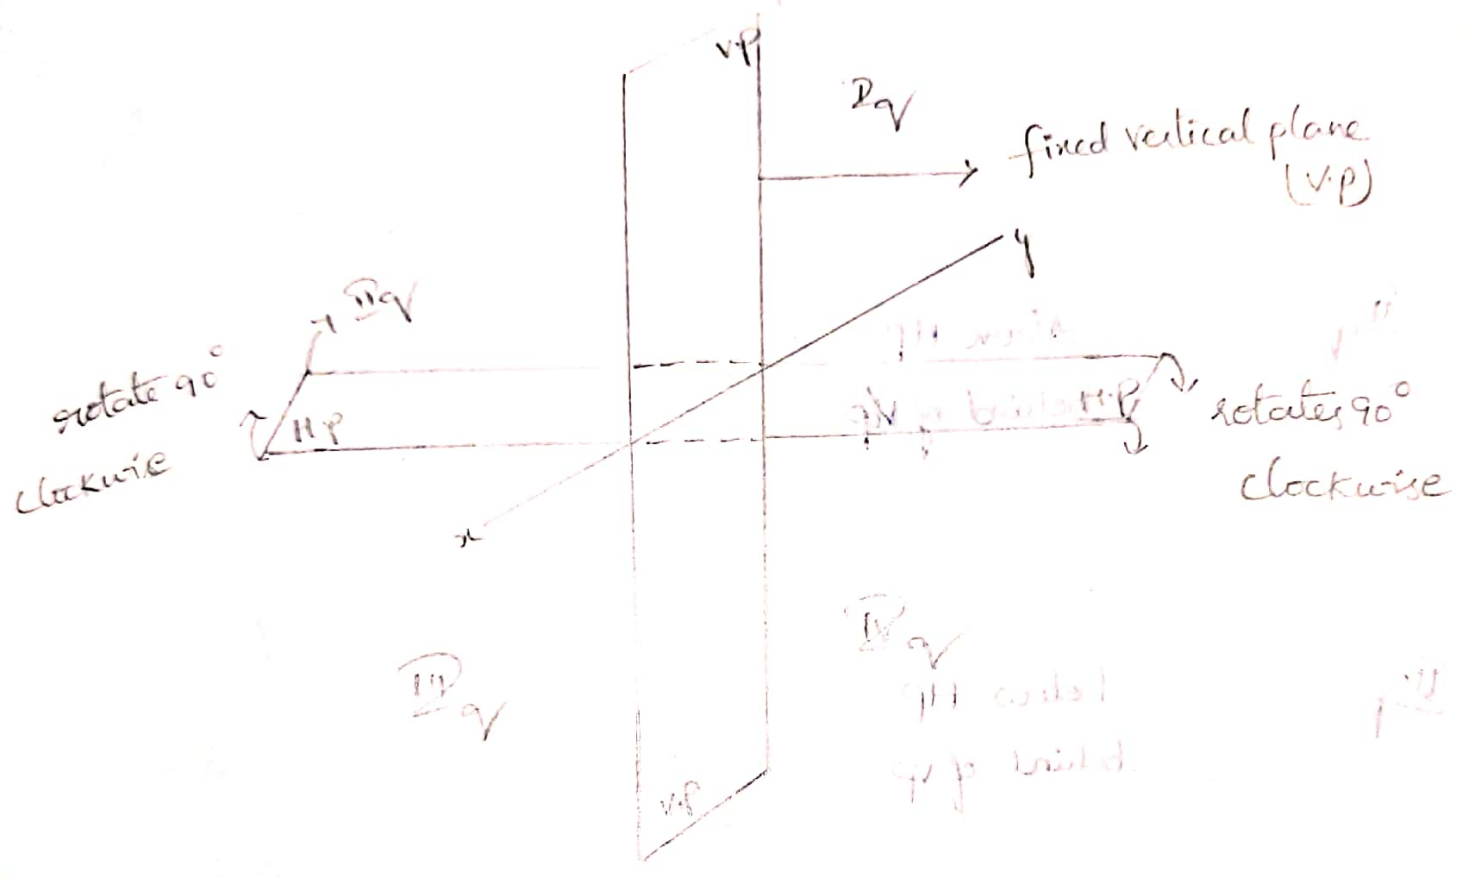 V.P
I q
fixed vertical plane
(V.P)
y
II q
rotate 90°
clockwie
H.P
H.P
rotates 90°
clockwise
x
IV q
III q
V.P